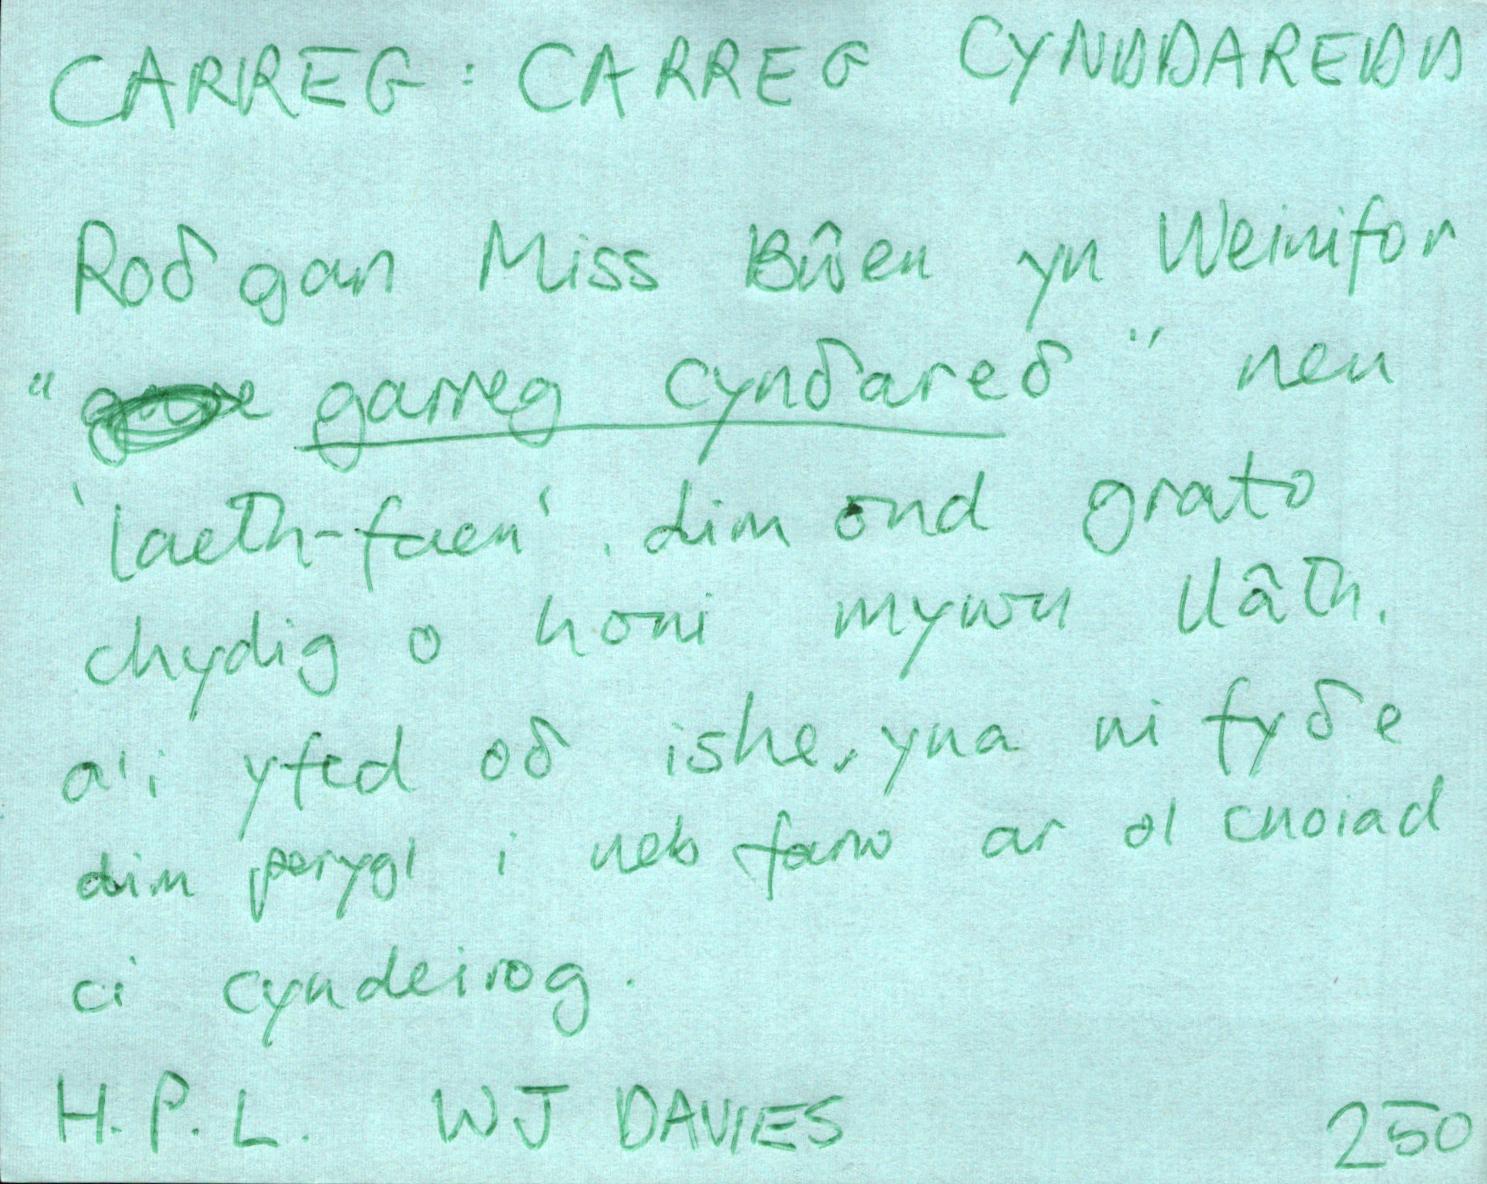 CARREG : CARREG CYNDDAREDD
Roδ gan Miss Bŵen yn Weinifor
" garreg cynδareδ " neu
'laeth-faen'. dim ond grato
chydig o honi mywn llâth,
a'i yfed oδ ishe, yna ni fyδe
dim perygl i neb farw ar ol cnoiad
ci cyndeirog.
H.P.L. WJ DAVIES 250